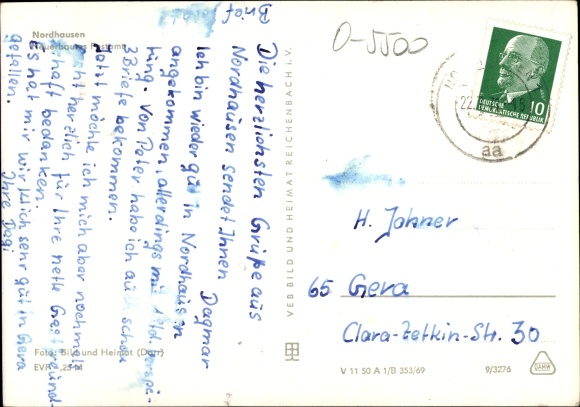 Nordhausen
Die herzlichsten Grüße aus
Nordhausen sendet Ihnen
Dagmar
Ich bin wieder gut in Nordhausen
angekommen, allerdings mit 1 Std.
Von Peter habe ich auch schon
3 Briefe bekommen.
Jetzt möchte ich mich aber nochmals
recht herzlich für Ihre nette Gastfreund-
schaft bedanken.
Es hat mir wirklich sehr gut in Gera
gefallen.
Ihre Dagi
Brief
Foto: Bild und Heimat (Darr)
VEB BILD UND HEIMAT REICHENBACH I. V.
0-5500
DEUTSCHE
DEMOKRATISCHE REPUBLIK
10
22.
aa
H. Jahner
65 Gera
Clara-Zetkin-Str. 30
V 11 50 A 1/B 353/69
9/3276
DAMW